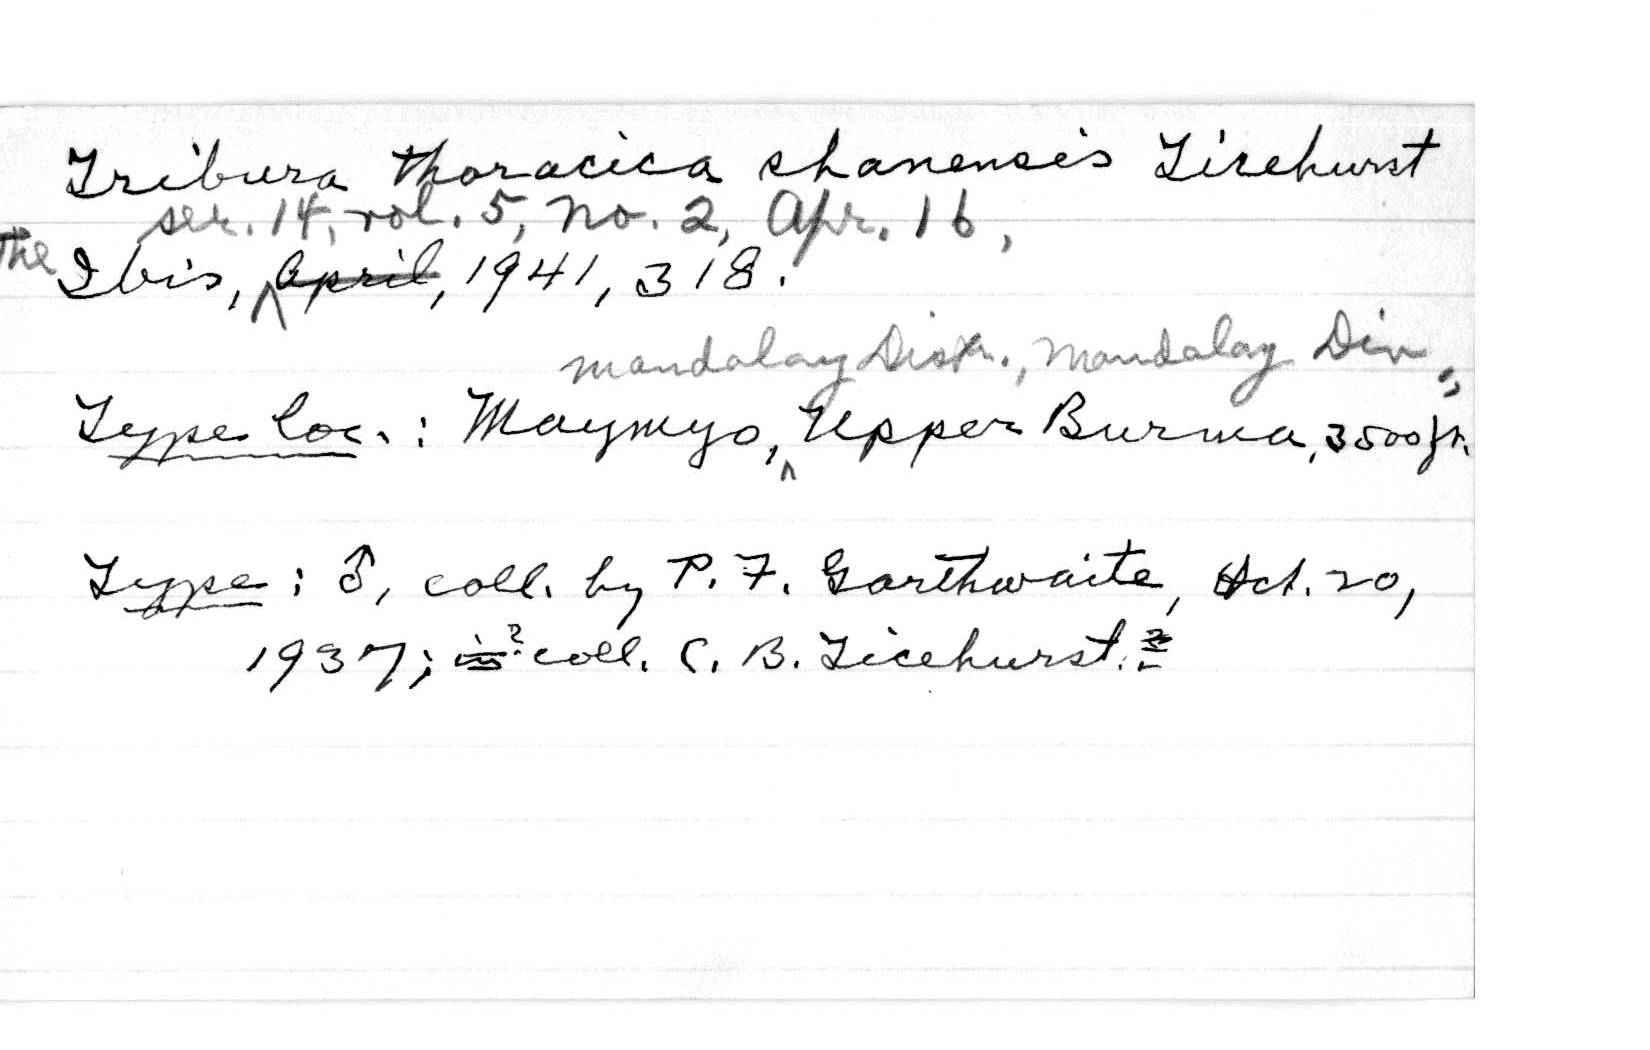 Tribura thoracica shanensis Ticehurst
ser. 14, vol. 5, no. 2, Apr. 16,
The Ibis, April, 1941, 318.
Mandalay Distr., Mandalay Div.,
Type loc.: Maymyo, Upper Burma, 3500 ft.
Type: ♂, coll. by P. F. Garthwaite, Oct. 20,
1937; in ? coll. C. B. Ticehurst. ?